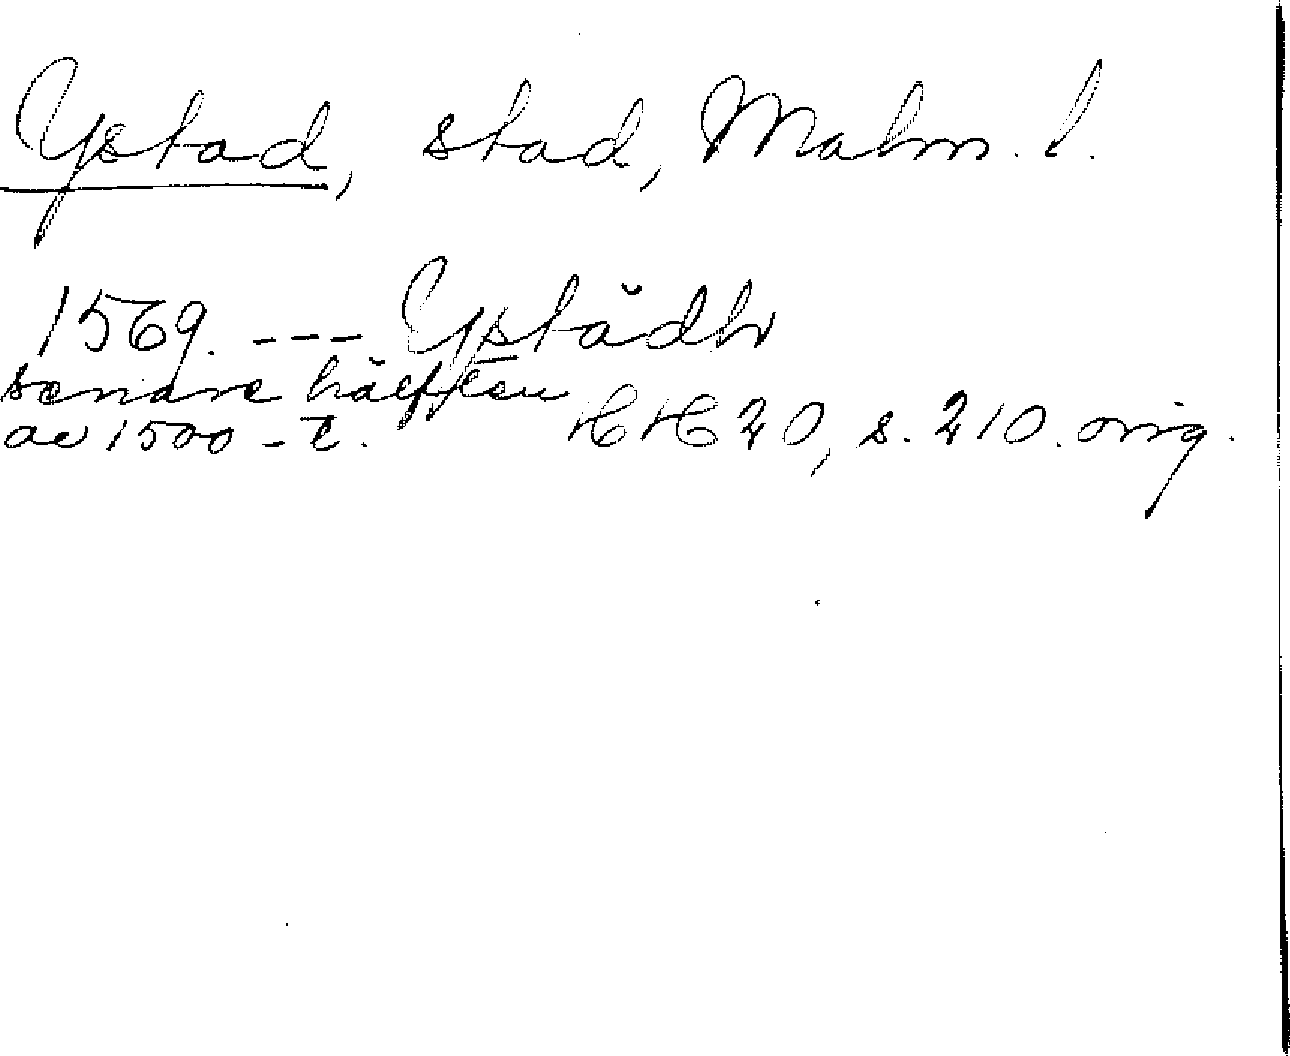 Ystad, stad, Malm. l.
1569. --- Ystădh
senare hälften
av 1500-t. HH 20, s. 210. orig.